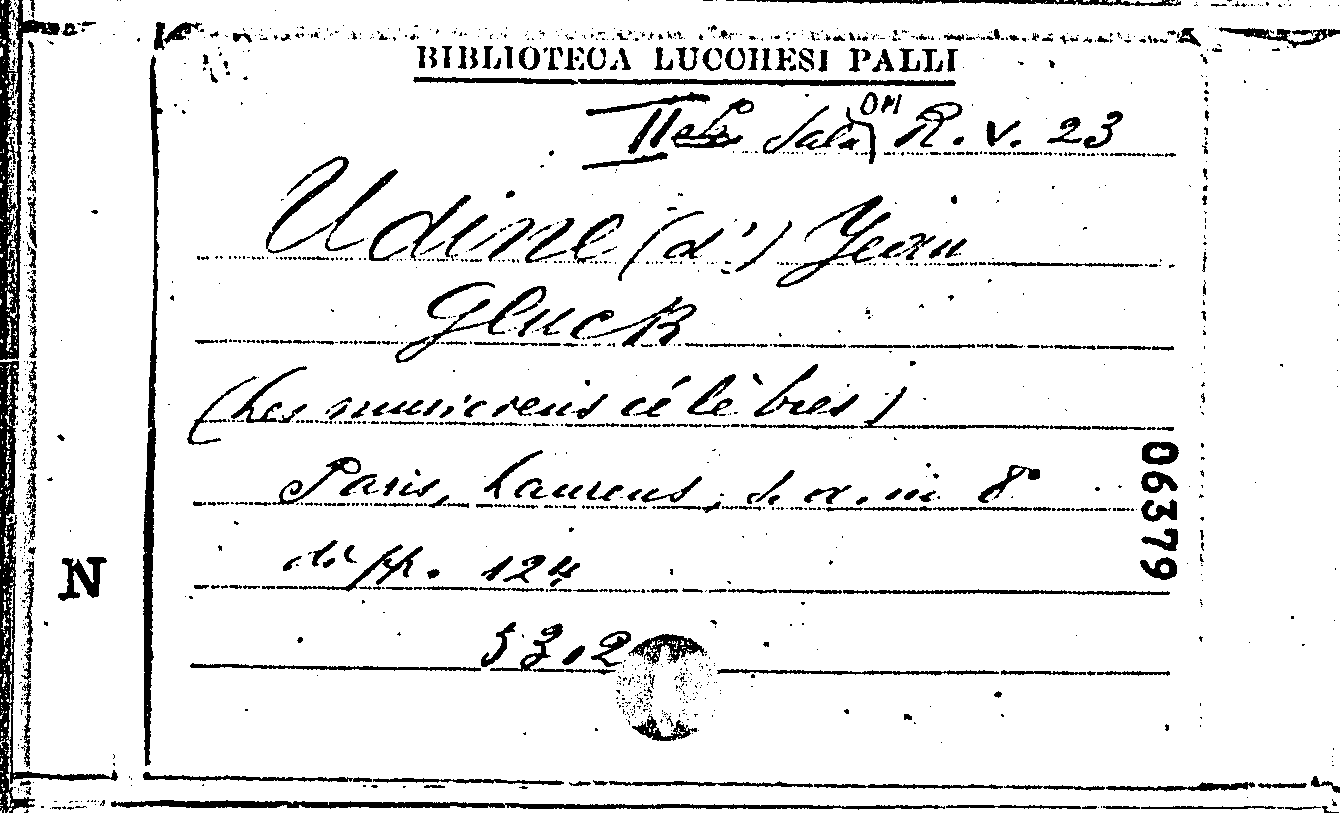 BIBLIOTECA LUCCHESI PALLI
II Sala OM R. V. 23
Udine (d') Jean
Gluck
(Les musiciens célèbres)
Paris, Laurens, s. a. in 8°
di pp. 124
53.2
06379
N